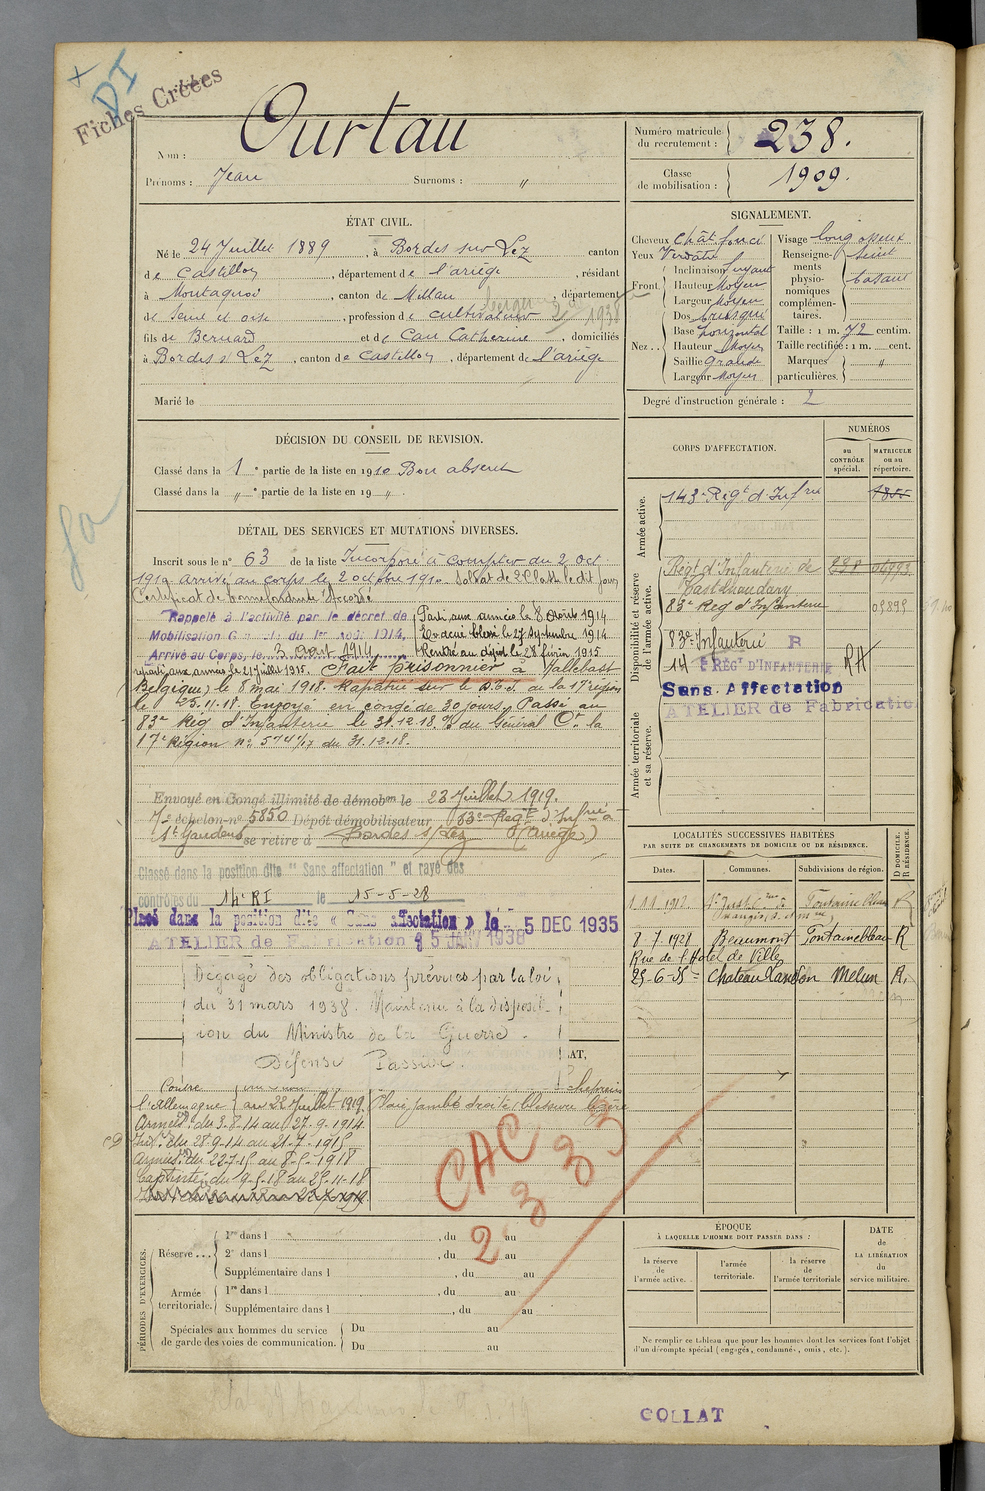 Fiches Créées
DI
Nom : Ourtau
Prénoms : Jean Surnoms : "
Numéro matricule du recrutement : 238.
Classe de mobilisation : 1909.
ÉTAT CIVIL.
Né le 24 Juillet 1889, à Bordes sur Lez canton
de Castillon, département de l'ariège, résidant
à, canton de Millau, département
de Seine et oise, profession de cultivateur
fils de Bernard et de Cau Catherine, domiciliés
à Bordes s/ Lez, canton de Castillon, département de l'ariège
Marié le
SIGNALEMENT.
Cheveux Chât. foncé
Yeux Verdâtre
Front
Inclinaison fuyant
Hauteur Moyen
Largeur Moyen
Nez
Dos busqué
Base horizontal
Hauteur Moyen
Saillie Grande
Largeur Moyen
Visage long osseux
Renseignements physionomiques complémentaires. teint basané
Taille : 1 m. 72 centim.
Taille rectifiée : 1 m. cent.
Marques particulières. "
Degré d'instruction générale : 2
DÉCISION DU CONSEIL DE REVISION.
Classé dans la 1e partie de la liste en 1910 Bon absent
Classé dans la " e partie de la liste en 19 "
DÉTAIL DES SERVICES ET MUTATIONS DIVERSES.
Inscrit sous le n° 63 de la liste Incorporé à compter du 2 Oct
1910 arrivé au corps le 2 octobre 1910. Soldat de 2e Classe le dit jour
Certificat de bonne conduite Accordé
Rappelé à l'activité par le décret de
Mobilisation Générale du 1er août 1914,
Arrivé au Corps, le 3 Août 1914
Parti aux armées le 8 Août 1914
Evacué blessé le 27 Septembre 1914
Rentré au dépôt le 28 février 1915
reparti aux armées le 21 juillet 1915. Fait prisonnier à Hallebast
(Belgique) le 8 mai 1918. Rapatrié sur le D.C.I. de la 17e région
le 25.11.18. Envoyé en congé de 30 jours. Passé au
83e Rég d'Infanterie le 31.12.18 du Général Ct la
17e Région n° 574 1/17 du 31.12.18.
Envoyé en Congé illimité de démobon le 23 Juillet 1919.
7e échelon n° 5850 Dépôt démobilisateur 83e Regt d'Infrie à
St Gaudens se retire à Bordes s/Lez (Ariège)
Classé dans la position dite "Sans affectation" et rayé des
contrôles du 14e RI le 15-5-28
Placé dans la position dite « Sans affectation » le 5 DEC 1935
ATELIER de Fabrication 5 JANV 1938
Dégagé des obligations prévues par la loi
du 31 mars 1928. Maintenu à la disposit-
ion du Ministre de la Guerre.
Défense Passive.
Contre
l'Allemagne au 22 Juillet 1919.
Plaie jambe droite, blessure légère
Armées : du 3-8-14 au 27-9-1914
Int. : du 28-9-14 au 21-7-1915
Armées : du 22-7-15 au 8-5-1918
Captivité : du 9-5-18 au 25-11-18
CAC
233
CORPS D'AFFECTATION.
NUMÉROS
au CONTRÔLE spécial.
MATRICULE ou au répertoire.
Armée active.
143e Régt d'Infrie 1855
Disponibilité et réserve de l'armée active.
Régt d'Infanterie de
Castelnaudary
83e Reg d'Infanterie
83e Infanterie R
14e RÉGt D'INFANTERIE RH
Sans Affectation
ATELIER de Fabrication
Armée territoriale et sa réserve.
LOCALITÉS SUCCESSIVES HABITÉES
PAR SUITE DE CHANGEMENTS DE DOMICILE OU DE RÉSIDENCE.
Dates. Communes. Subdivisions de région. D DOMICILE. R RÉSIDENCE.
1.11.1912 Fontainebleau R
8.7.1921 Beaumont Fontainebleau R
Rue de l'Hotel de Ville
25-6-35 Chateau Landon Melun R.
PÉRIODES D'EXERCICES.
Réserve ...
1re dans l , du au
2e dans l , du au
Supplémentaire dans l , du au
Armée territoriale.
1re dans l , du au
Supplémentaire dans l , du au
Spéciales aux hommes du service de garde des voies de communication.
Du au
Du au
ÉPOQUE
À LAQUELLE L'HOMME DOIT PASSER DANS :
la réserve de l'armée active.
l'armée territoriale.
la réserve de l'armée territoriale
DATE de LA LIBÉRATION du service militaire.
Ne remplir ce tableau que pour les hommes dont les services font l'objet
d'un décompte spécial (engagés, condamnés, omis, etc.).
COLLAT